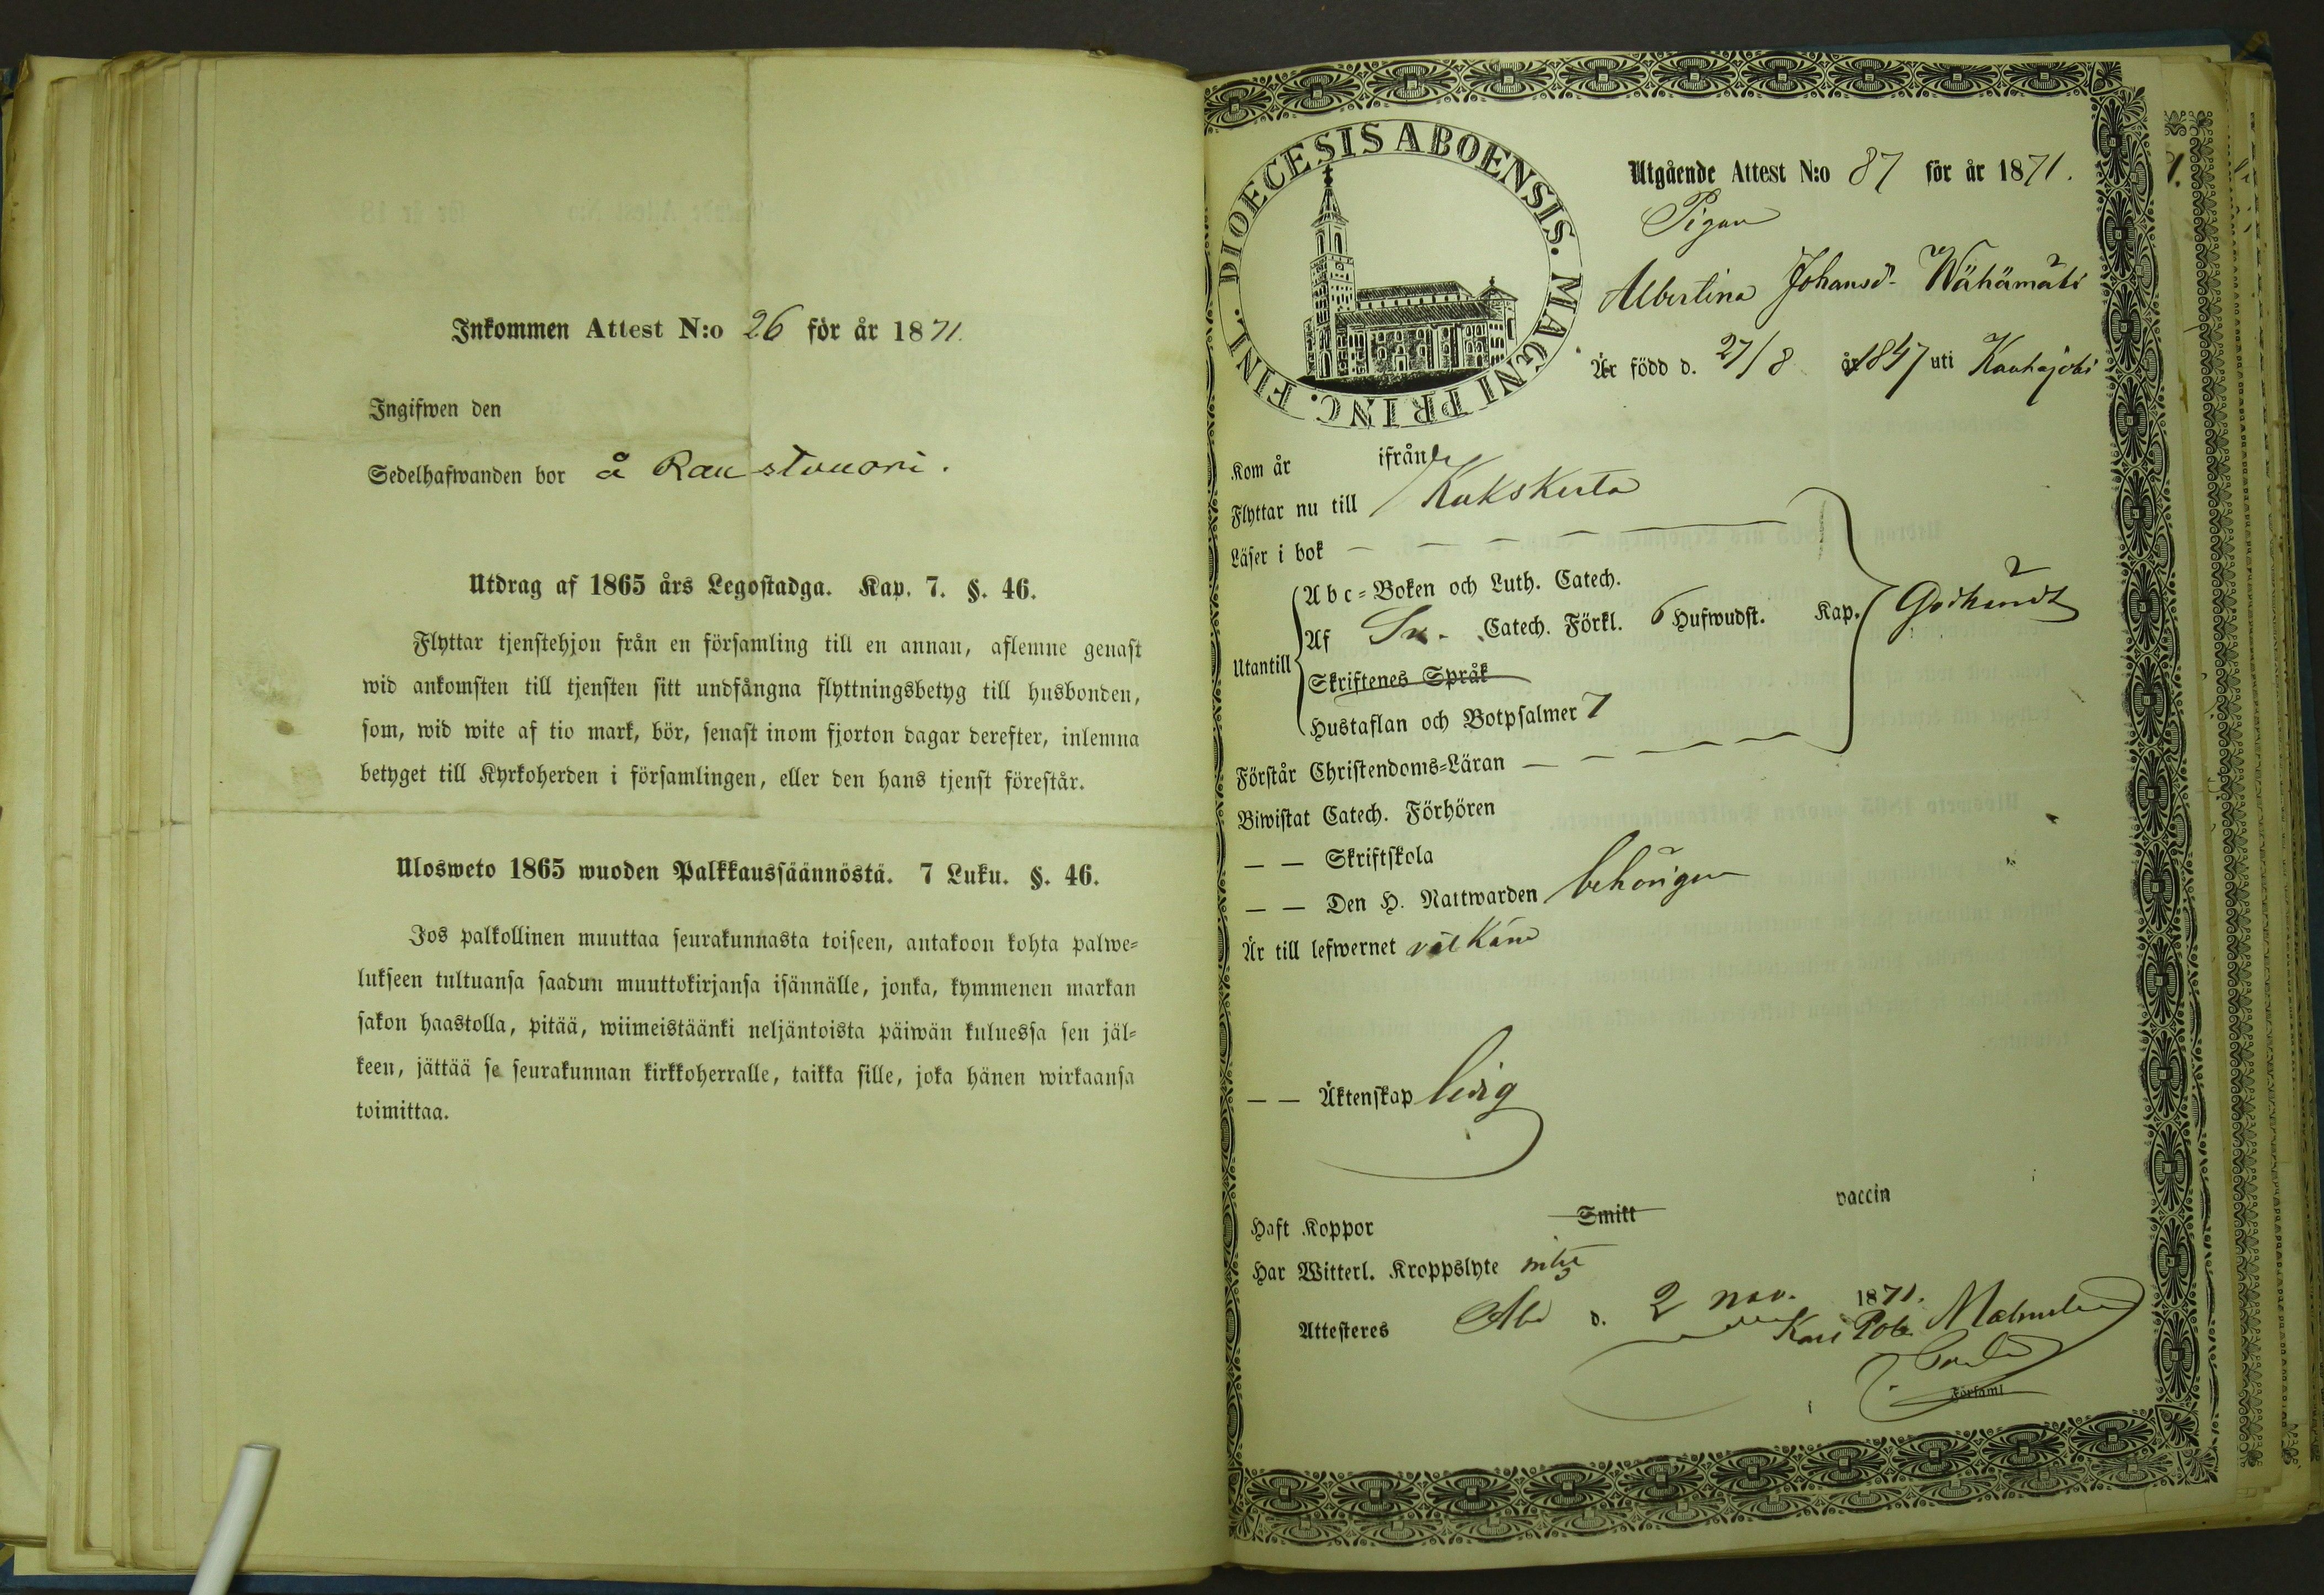 Inkommen Attest N:o 26 för år 1871.
Ingifwen den
Sedelhafwanden bor å Raustvuori.
Utdrag af 1865 års Legostadga. Kap. 7. §. 46.
Flyttar tjenstehjon från en församling till en annan, aflemne genast
wid ankomsten till tjensten sitt undfångna flyttningsbetyg till husbonden,
som, wid wite af tio mark, bör, senast inom fjorton dagar derefter, inlemna
betyget till Kyrkoherden i församlingen, eller den hans tjenst förestår.
Ulosweto 1865 wuoden Palkkaussäännöstä. 7 Luku. §. 46.
Jos palkollinen muuttaa seurakunnasta toiseen, antakoon kohta palwe-
lukseen tultuansa saadun muuttokirjansa isännälle, jonka, kymmenen markan
sakon haastolla, pitää, wiimeistäänki neljäntoista päiwän kuluessa sen jäl-
keen, jättää se seurakunnan kirkkoherralle, taikka sille, joka hänen wirkaansa
toimittaa.
DIOECESIS ABOENSIS. MAGNI PRINC. FINL.
Utgående Attest N:o 87 för år 1871.
Pigan
Albertina Johansd. Wähämäki
Är född d. 27/8 år 1847 uti Kauhajoki
Kom år ifrån
Flyttar nu till Kakskerta
Läser i bok
Abc-Boken och Luth. Catech.
Utantill Af Sv. Catech. Förkl. 6 Hufwudst. Kap. Godkändt
Skriftenes Språk
Hustaflan och Botpsalmer 7
Förstår Christendoms-Läran
Biwistat Catech. Förhören
— — Skriftskola
— — Den H. Nattwarden behörigen
Är till lefwernet välkänd
— — Äktenskap ledig
Haft Koppor Smitt vaccin
Har Witterl. Kroppslyte intet
Attesteres Åbo d. 2 nov. 1871.
Karl Rob. Malmström
i Församl